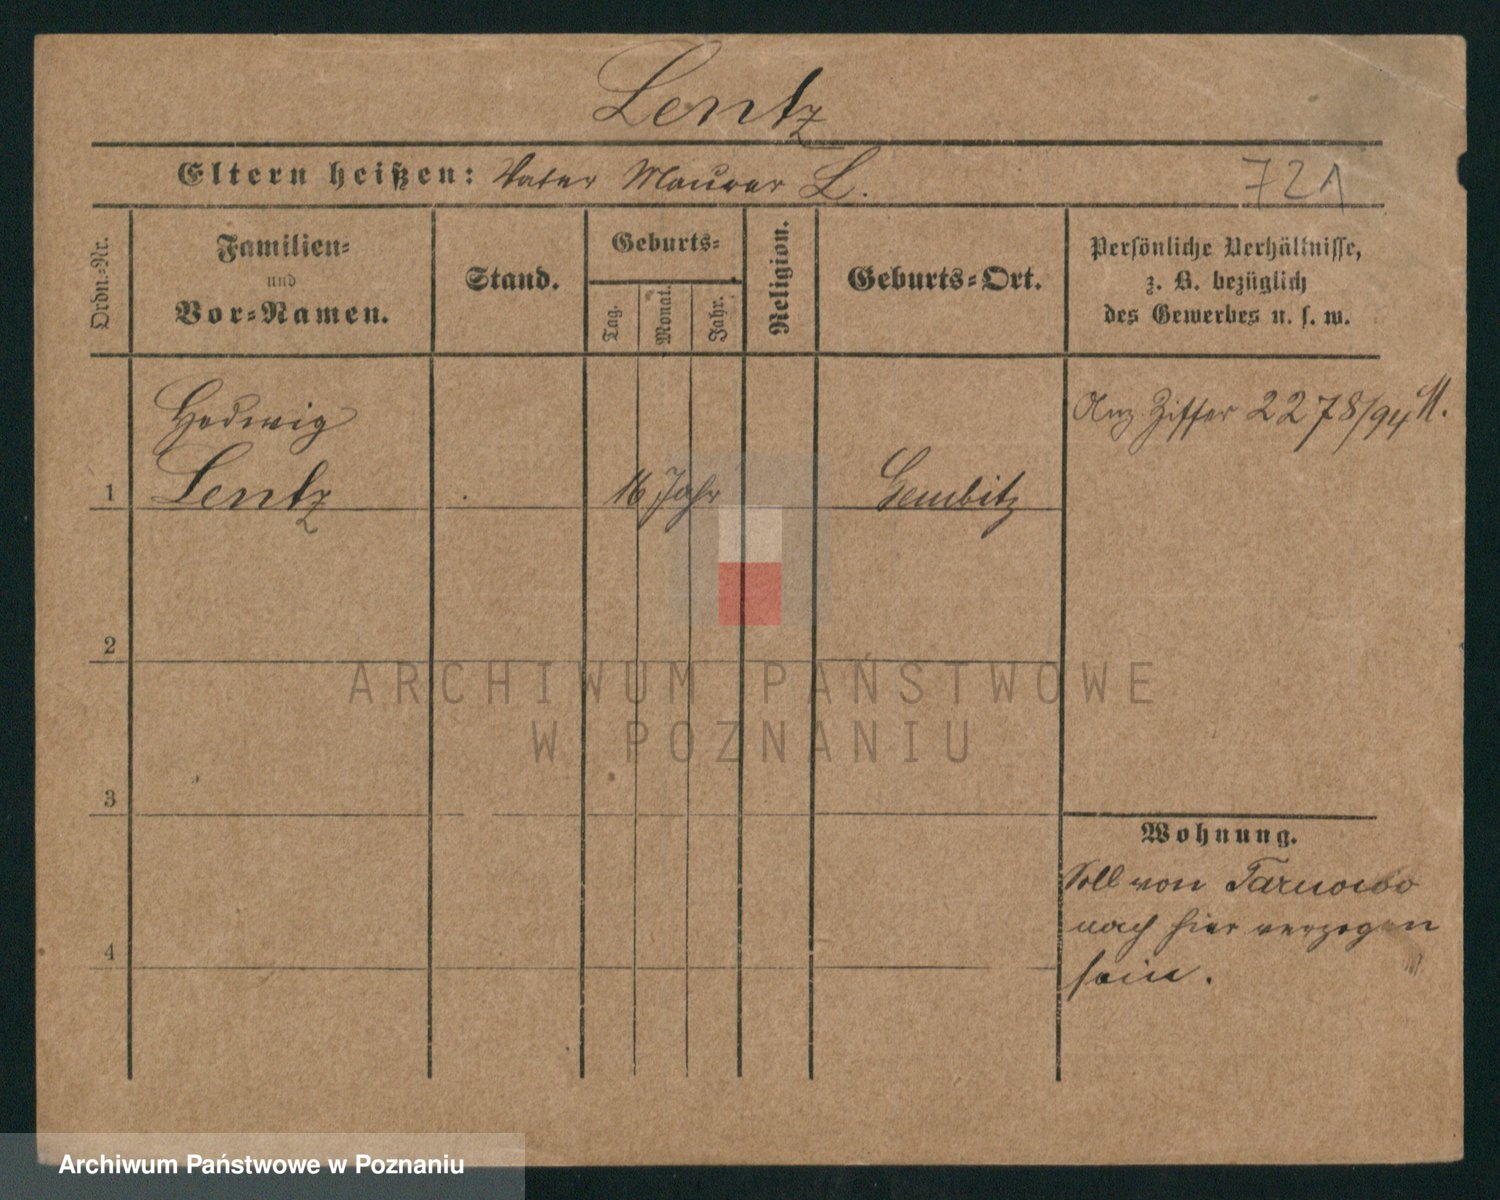 Lentz
Eltern heißen: Vater Maurer L.
721
Ordn.-Nr.
Familien-
und
Vor-Namen.
Stand.
Geburts-
Tag.
Monat.
Jahr.
Religion.
Geburts-Ort.
Persönliche Verhältnisse,
z. B. bezüglich
des Gewerbes u. s. w.
Hedwig
1 Lentz 16 Jahr Gembitz
Anz. Ziffer 2278/94
2
3
4
Wohnung.
Soll von Tarnowo
nach hier verzogen
sein.
ARCHIWUM PAŃSTWOWE
W POZNANIU
Archiwum Państwowe w Poznaniu